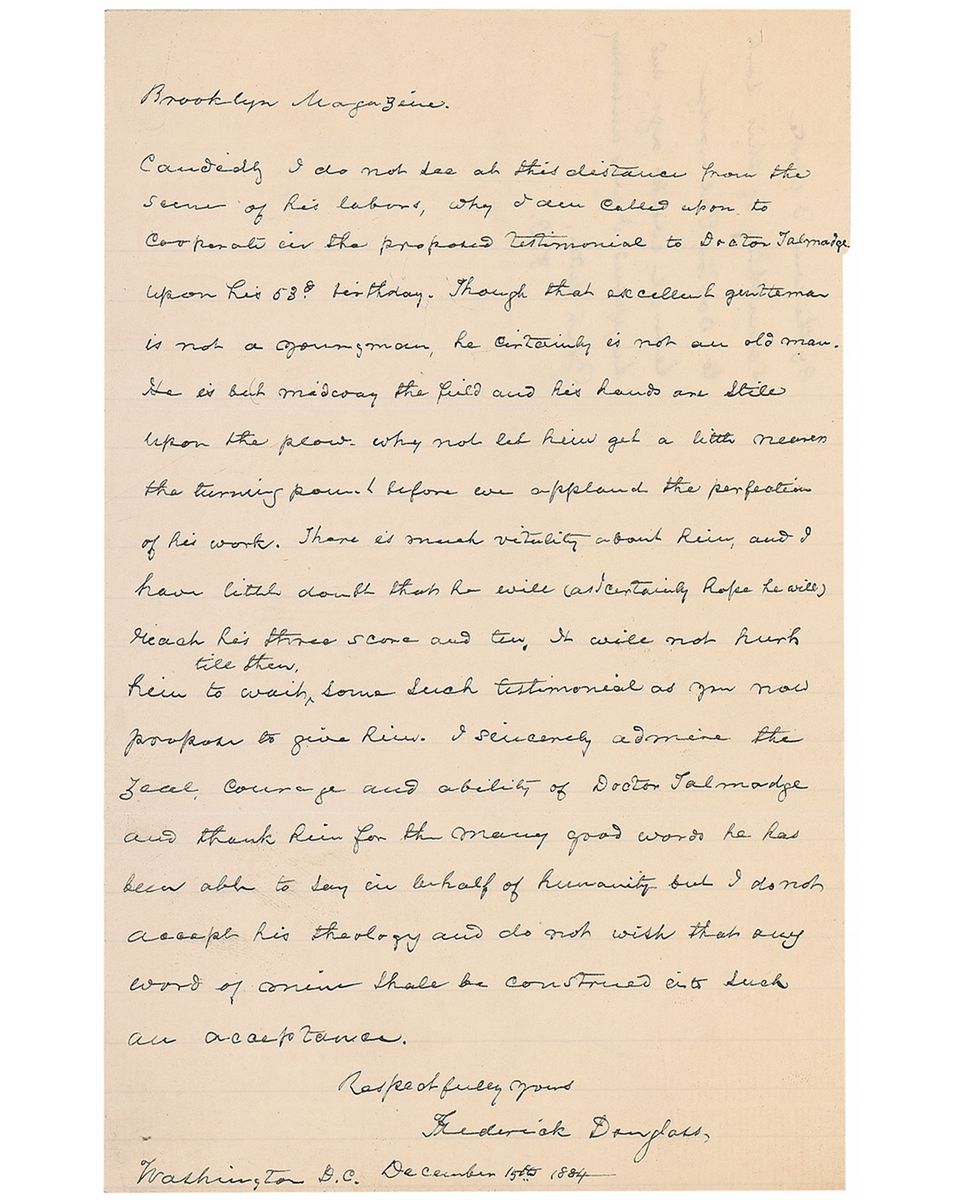 Brooklyn Magazine.
Candidly I do not see at this distance from the
scene of his labors, why I am called upon to
cooperate in the proposed testimonial to Doctor Talmadge
upon his 53d birthday. Though that excellent gentleman
is not a young man, he certainly is not an old man.
He is but midway the field and his hands are still
upon the plow. why not let him get a little nearer
the turning point before we applaud the perfection
of his work. There is much vitality about him, and I
have little doubt that he will (as I certainly hope he will)
reach his three score and ten. It will not hurt
till then,
him to wait, some such testimonial as you now
propose to give him. I sincerely admire the
zeal, courage and ability of Doctor Talmadge
and thank him for the many good words he has
been able to say in behalf of humanity but I do not
accept his theology and do not wish that any
word of mine shall be construed into such
an acceptance.
Respectfully yours
Frederick Douglass,
Washington D.C. December 15th 1884